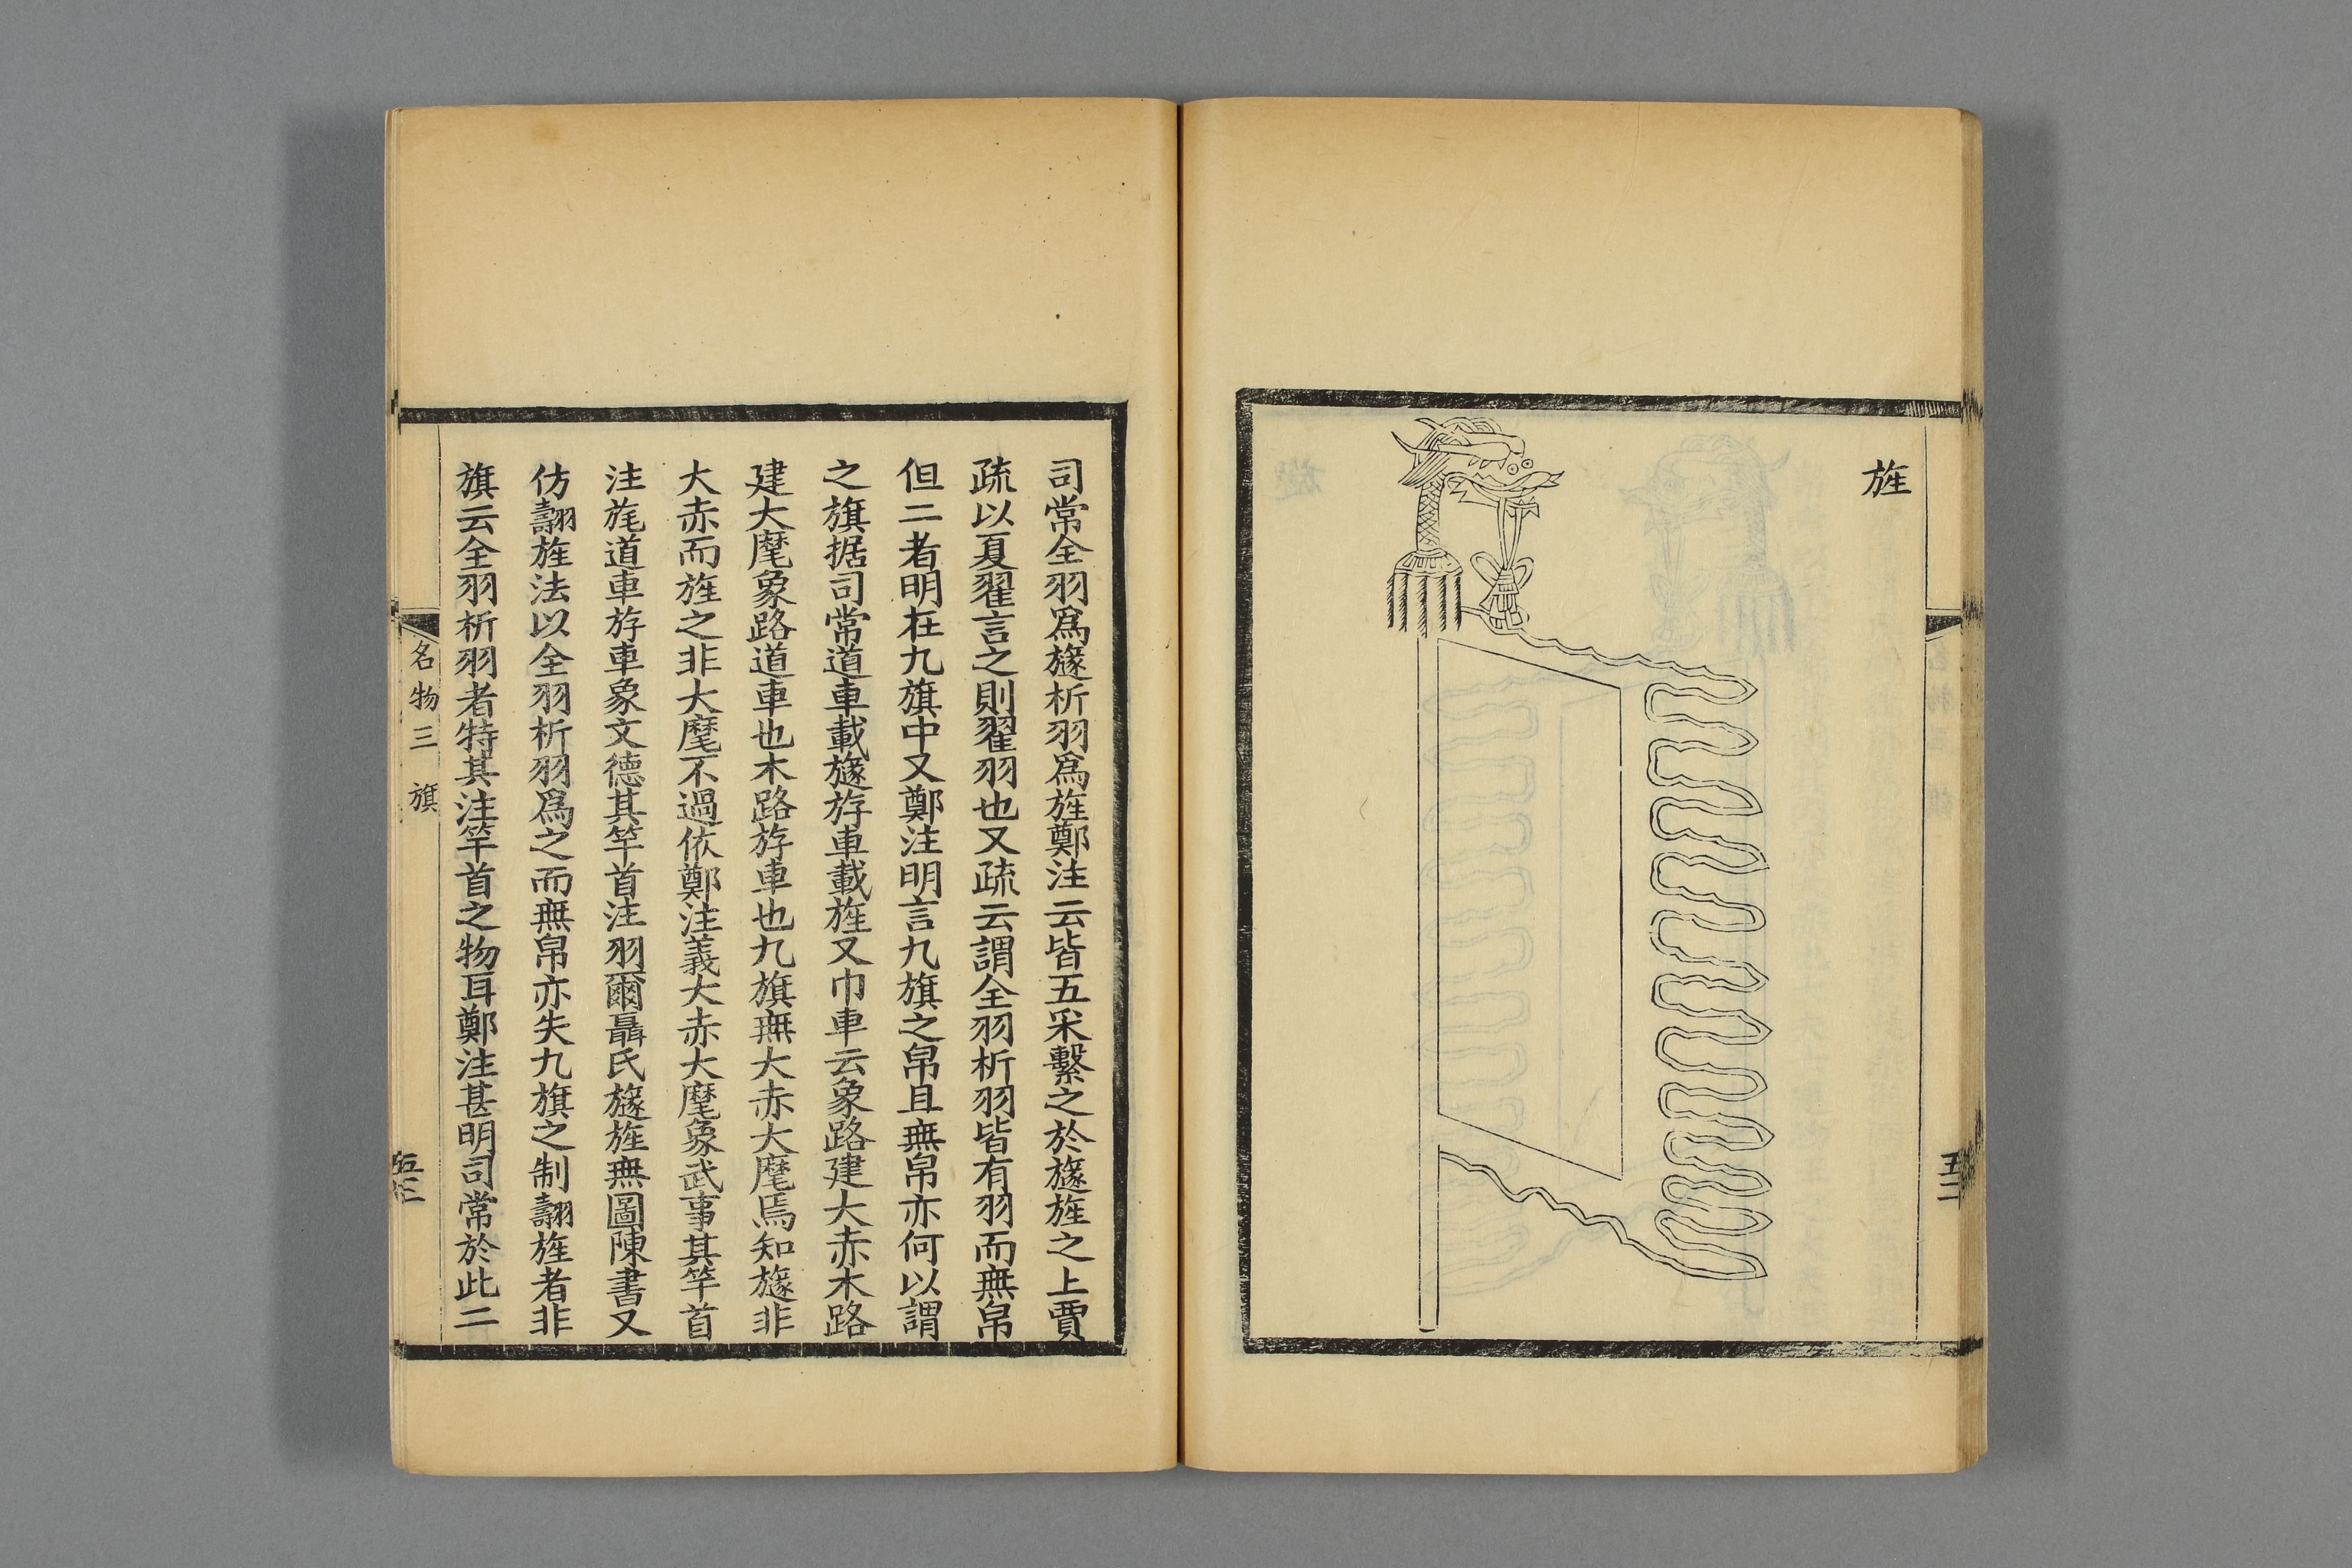 旌
五二
司常全羽爲旞析羽爲旌鄭注云皆五采繫之於旞旌之上賈
疏以夏翟言之則翟羽也又疏云謂全羽析羽皆有羽而無帛
但二者明在九旗中又鄭注明言九旗之帛且無帛亦何以謂
之旗据司常道車載旞斿車載旌又巾車云象路建大赤木路
建大麾象路道車也木路斿車也九旗無大赤大麾焉知旞非
大赤而旌之非大麾不過依鄭注義大赤大麾象武事其竿首
注旄道車斿車象文德其竿首注羽爾聶氏旞旌無圖陳書又
仿翿旌法以全羽析羽爲之而無帛亦失九旗之制翿旌者非
旗云全羽析羽者特其注竿首之物耳鄭注甚明司常於此二
名物三 旗